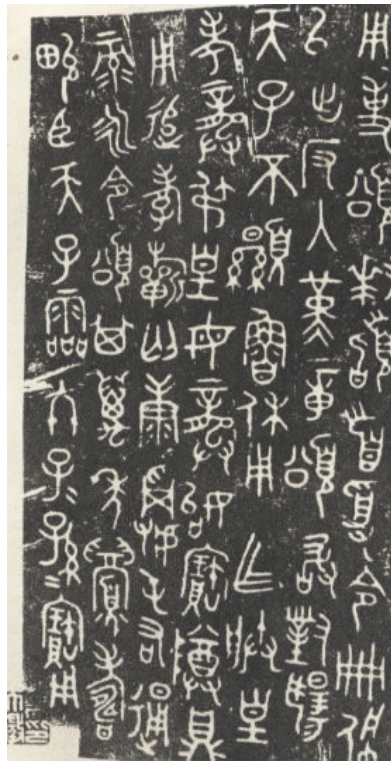 用事頌拜𩒨首受令冊佩
以出反入堇章頌敢對揚
天子不顯魯休用乍朕皇
考龏弔皇母龏姒寶尊鼎
用追孝𣄨匄康𩁹屯右通
彔永令頌其萬年眉壽
畯臣天子霝冬子=孫=寶用